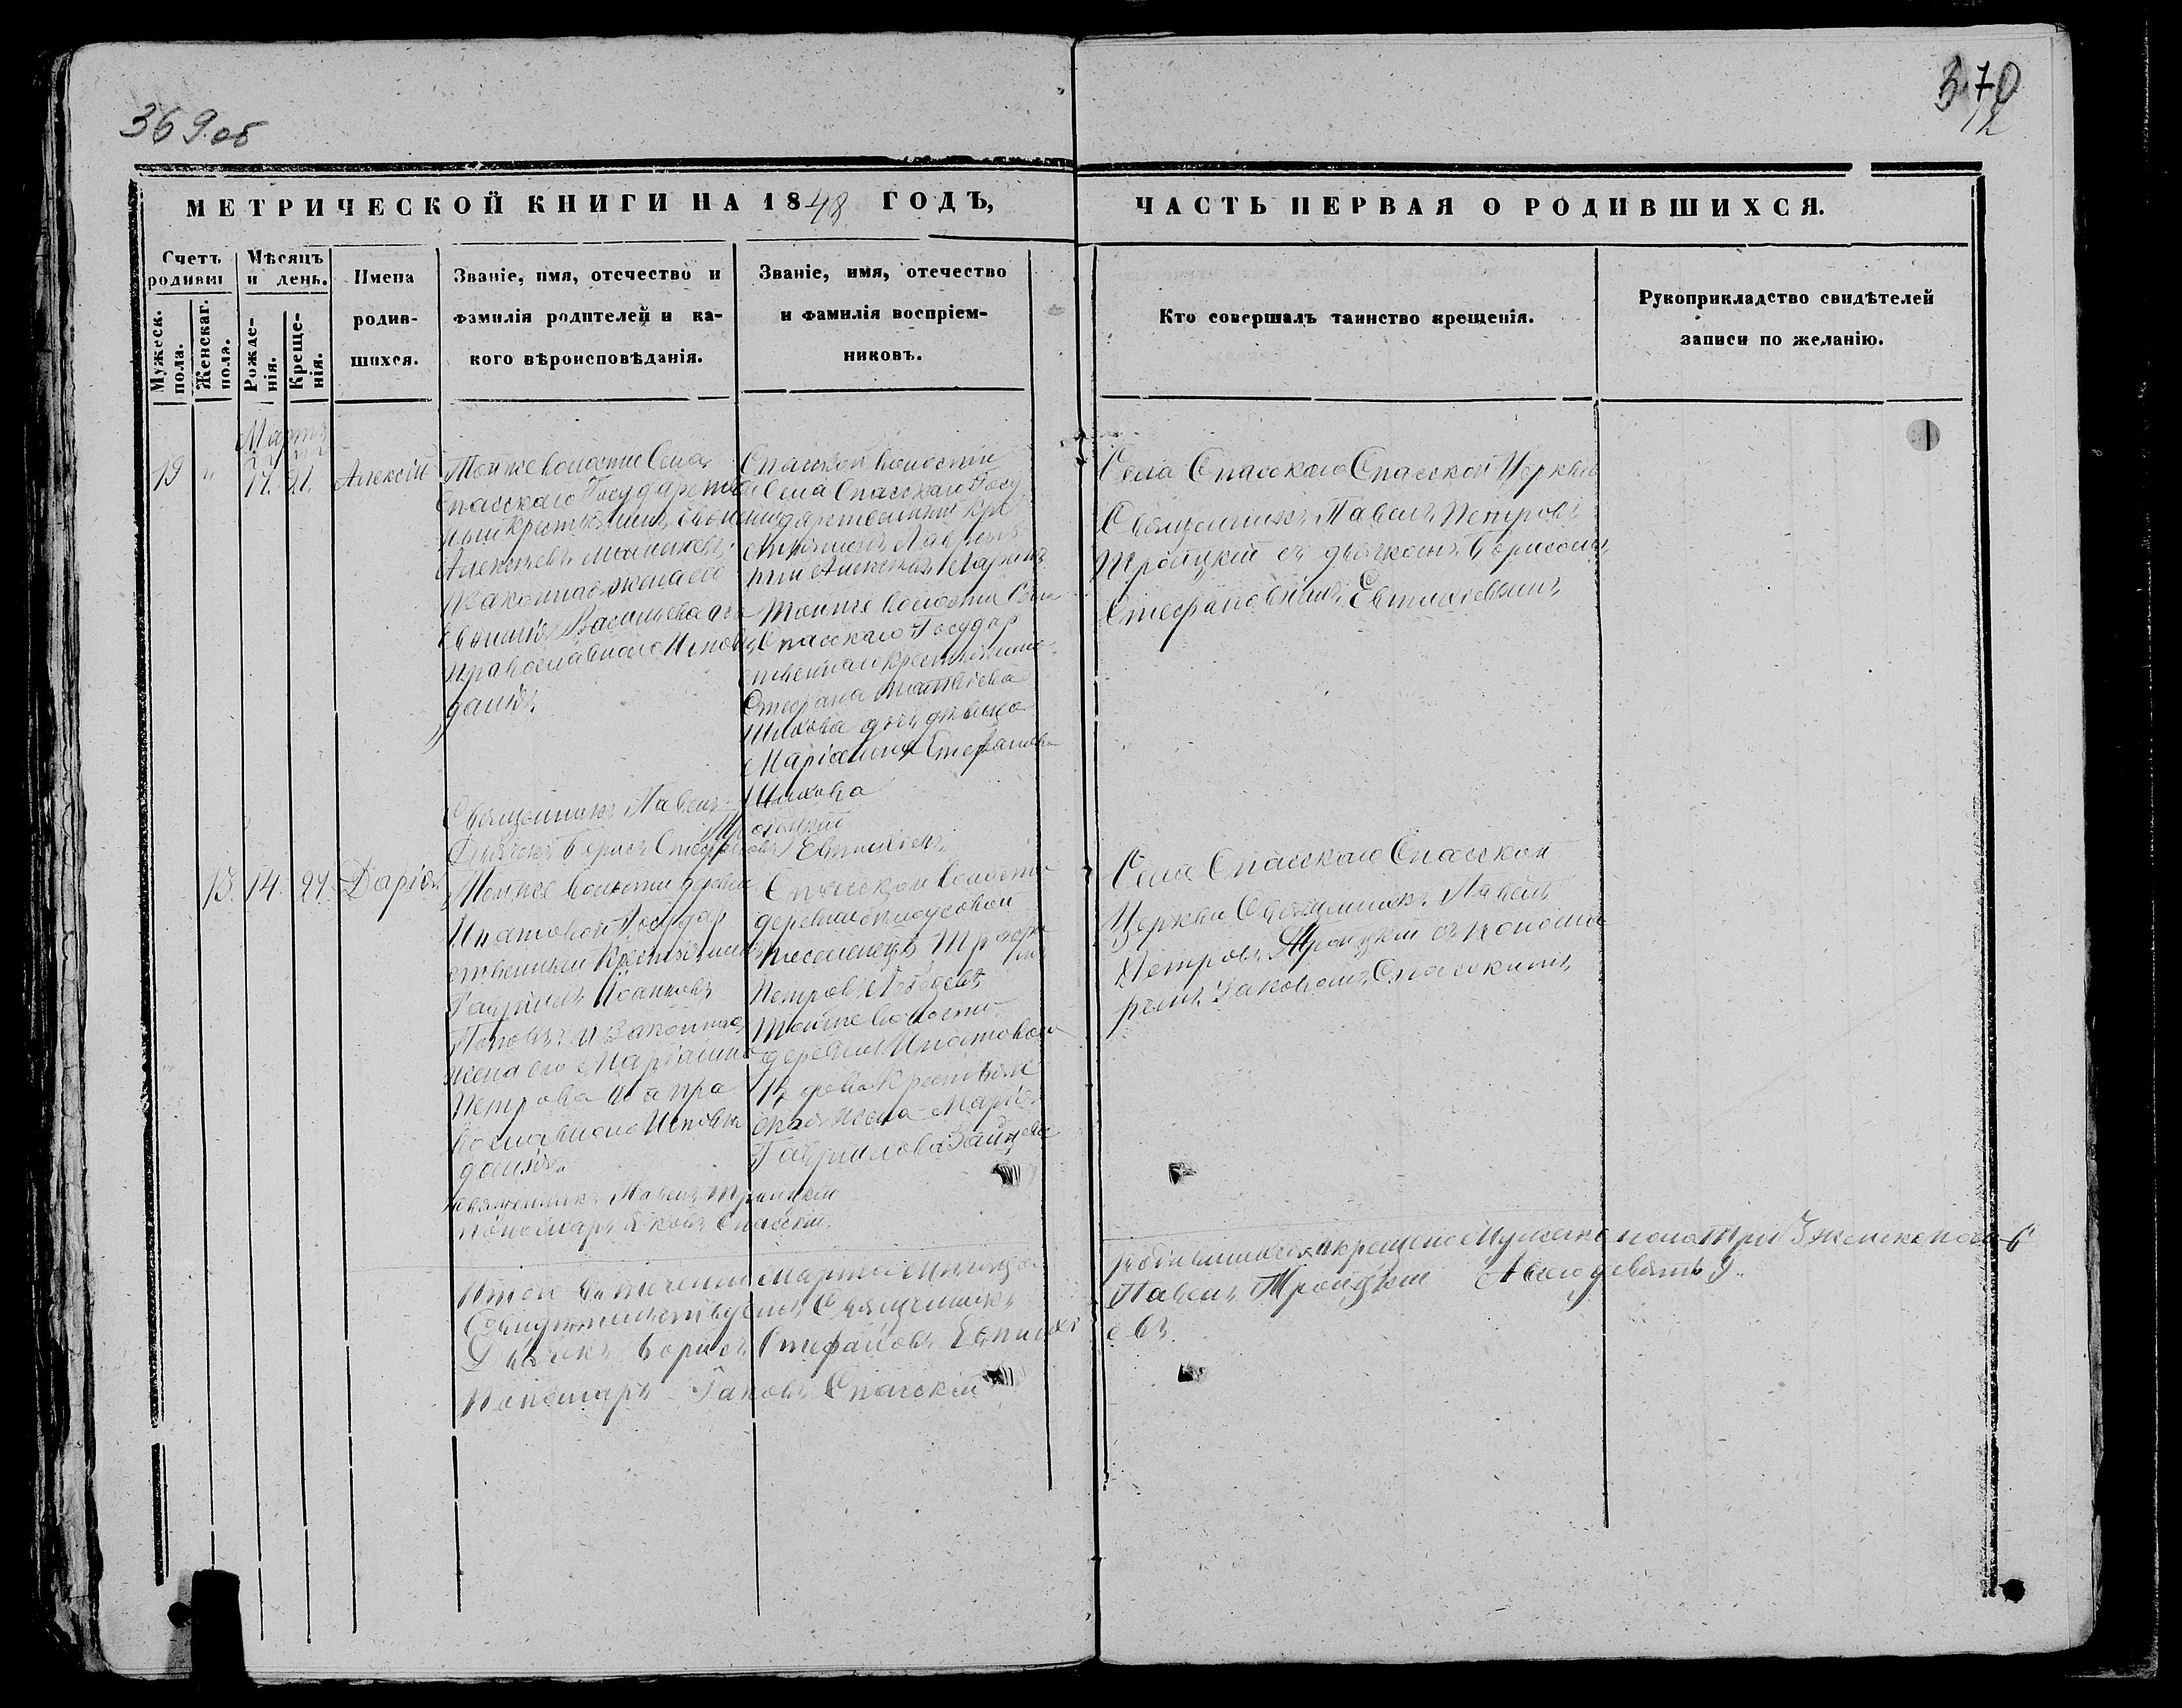 369 об
370
МЕТРИЧЕСКОЙ КНИГИ НА 1848 ГОДЪ,
ЧАСТЬ ПЕРВАЯ О РОДИВШИХСЯ.
Счетъ родивш
Мужеск. пола.
Женскаг. пола.
Мѣсяцъ и день.
Рожде-
нія.
Креще-
нія.
Имена
родив-
шихся.
Званіе, имя, отечество и
фамилія родителей и ка-
кого вѣроисповѣданія.
Званіе, имя, отечество
и фамилія воспріем-
никовъ.
Кто совершалъ таинство крещенія.
Рукоприкладство свидѣтелей
записи по желанію.
Марта
19 " 17. 21. Алексій
Тойже волости Села
Спасскаго Государстве
ный крестьянинъ
Алексѣевъ
Законная жена его
Васильева оба
православнаго Исповѣ
данія.
Спасской волости
Села Спасскаго Госу
дарственный кре
стьянинъ
Алексѣевъ
Тойже волости Села
Спасскаго Государ
ственнаго крестьянина
Стефана Матвѣева
дочь дѣвица
Маріанна Стефанова
Села Спасскаго Спасской Церкви
Священникъ Павелъ Петровъ
Троицкій съ дьячкомъ Борисомъ
Стефановымъ Евтихіевымъ
Священникъ Павелъ
Троицкій
Дьячекъ Борисъ Стефановъ Евтихіевъ
13. 14. 21. Дарія
Тойже Волости деревни
Ипатовой Государ
ственный Крестьянинъ
Гавріилъ Іоанновъ
Поповъ и Законная
жена его Маріанна
Петрова оба пра
вославнаго Исповѣ
данія.
Спасской Волости
деревни Бѣлоусовой
поселенецъ Трофи
мъ
Петровъ Лебедевъ
Тойже волости
деревни Ипатовой
Крестьян
ская жена Марія
Гаврилова Зайцева
Села Спасскаго Спасской
Церкви Священникъ Павелъ
Петровъ Троицкій съ понома
ремъ Іаковомъ Спасскимъ
Священникъ Павелъ Троицкій
пономарь Яковъ Спасскій.
Итого въ теченіи Марта Мѣсяца
родившихся и крещено Мужеска пола три 3 женска пола 6
Священникъ Павелъ Троицкій А всего девять 9.
Дьячекъ Борисъ Стефановъ Евтихі
евъ.
Пономарь Іаковъ Спасскій